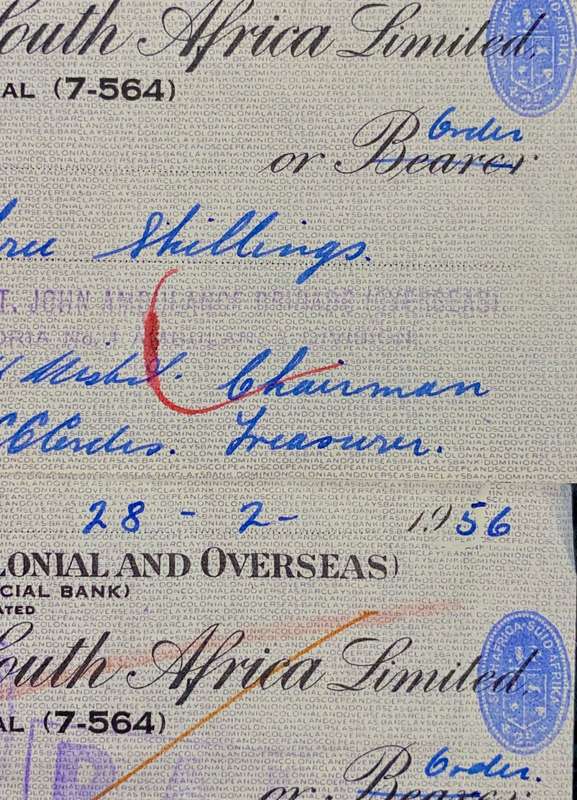 outh Africa Limited.
AL (7-564)
Order
or Bearer
ree Shillings.
T. JOHN AMBULANCE BRIGADE (OVERSEAS)
No. 1
Chairman
Treasurer.
28 - 2 - 1956
LONIAL AND OVERSEAS)
CIAL BANK)
ATED
outh Africa Limited.
AL (7-564)
Order.
or Bearer